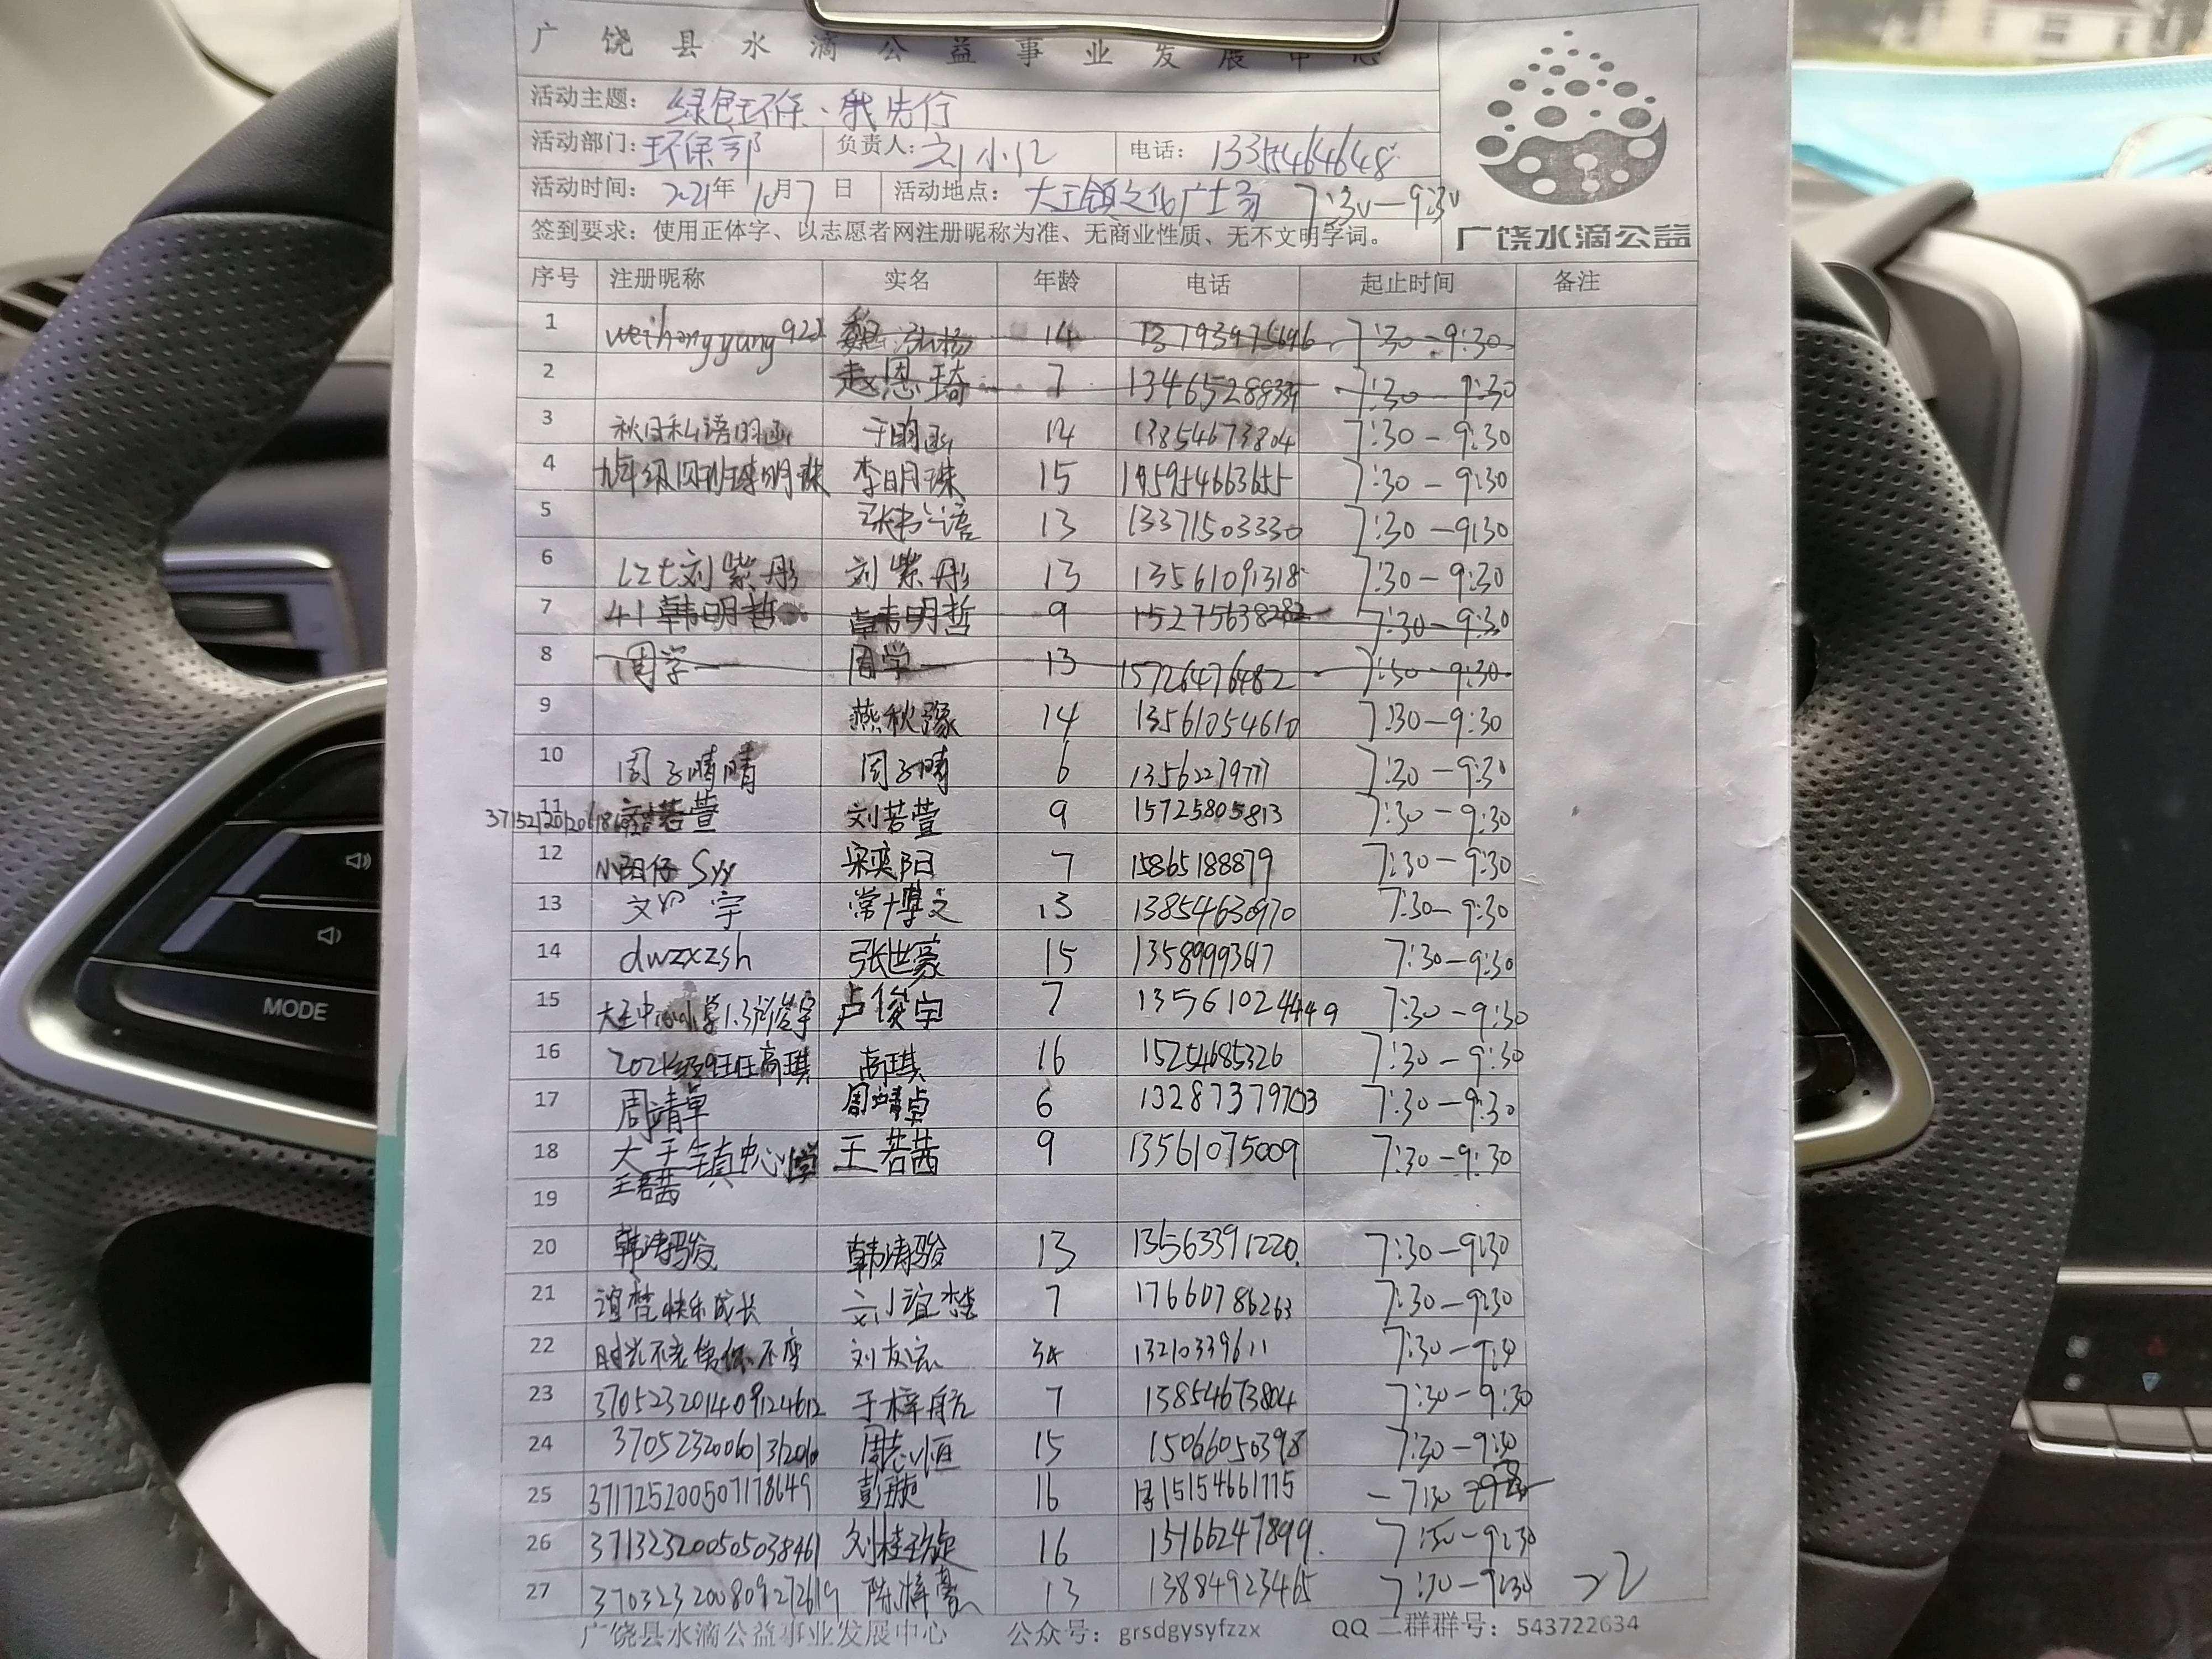 广饶县水滴公益事业发展中心
活动主题：绿色环保、我先行
活动部门：环保部 负责人： 电话：13355464648
活动时间：2021年10月7日 活动地点：大王镇文化广场 7:30—9:30
签到要求：使用正体字、以志愿者网注册昵称为准、无商业性质、无不文明字词。
广饶水滴公益
序号 注册昵称 实名 年龄 电话 起止时间 备注
1 14 7:30-9:30
2 赵恩琦 7 7:30-9:30
3 秋日私语明函 于明函 14 13854673804 7:30-9:30
4 李明珠 15 7:30-9:30
5 13 13371503330 7:30-9:30
6 刘紫彤 刘紫彤 13 13561091318 7:30-9:30
7 41韩明哲 韩明哲 9 15275638282 7:30-9:30
8 周学一 周学一 13 15726476482 7:30-9:30
9 燕秋豫 14 13561054610 7:30-9:30
10 周子晴晴 周子晴 6 7:30-9:30
11 刘若萱 刘若萱 9 15725805813 7:30-9:30
12 小阳仔Syy 宋奕阳 7 15865188879 7:30-9:30
13 宇 常博文 13 13854630970 7:30-9:30
14 dwzxzsh 张世豪 15 13589993617 7:30-9:30
15 卢俊宇 7 7:30-9:30
16 高琪 高琪 16 15254685326 7:30-9:30
17 周靖卓 周靖卓 6 13287379703 7:30-9:30
18 大王镇中心小学 王若茜 9 13561075009 7:30-9:30
王若茜
19
20 韩涛骏 韩涛骏 13 13563391220 7:30-9:30
21 谊梵快乐成长 刘谊梵 7 17660786263 7:30-9:30
22 刘友宏 34 13210339611
23 370523201409124612 于梓航 7 13854673804 7:30-9:30
24 周志恒 15 15066050398 7:30-9:30
25 371725200507178649 彭璇 16 15154661775 7:30
26 371323200505038461 16 15166247899 7:30-9:30
27 370323200809272619 陈梓豪 13 13884923465 7:30-9:30 22
广饶县水滴公益事业发展中心 公众号：grsdgysyfzzx QQ二群群号：543722634
MODE